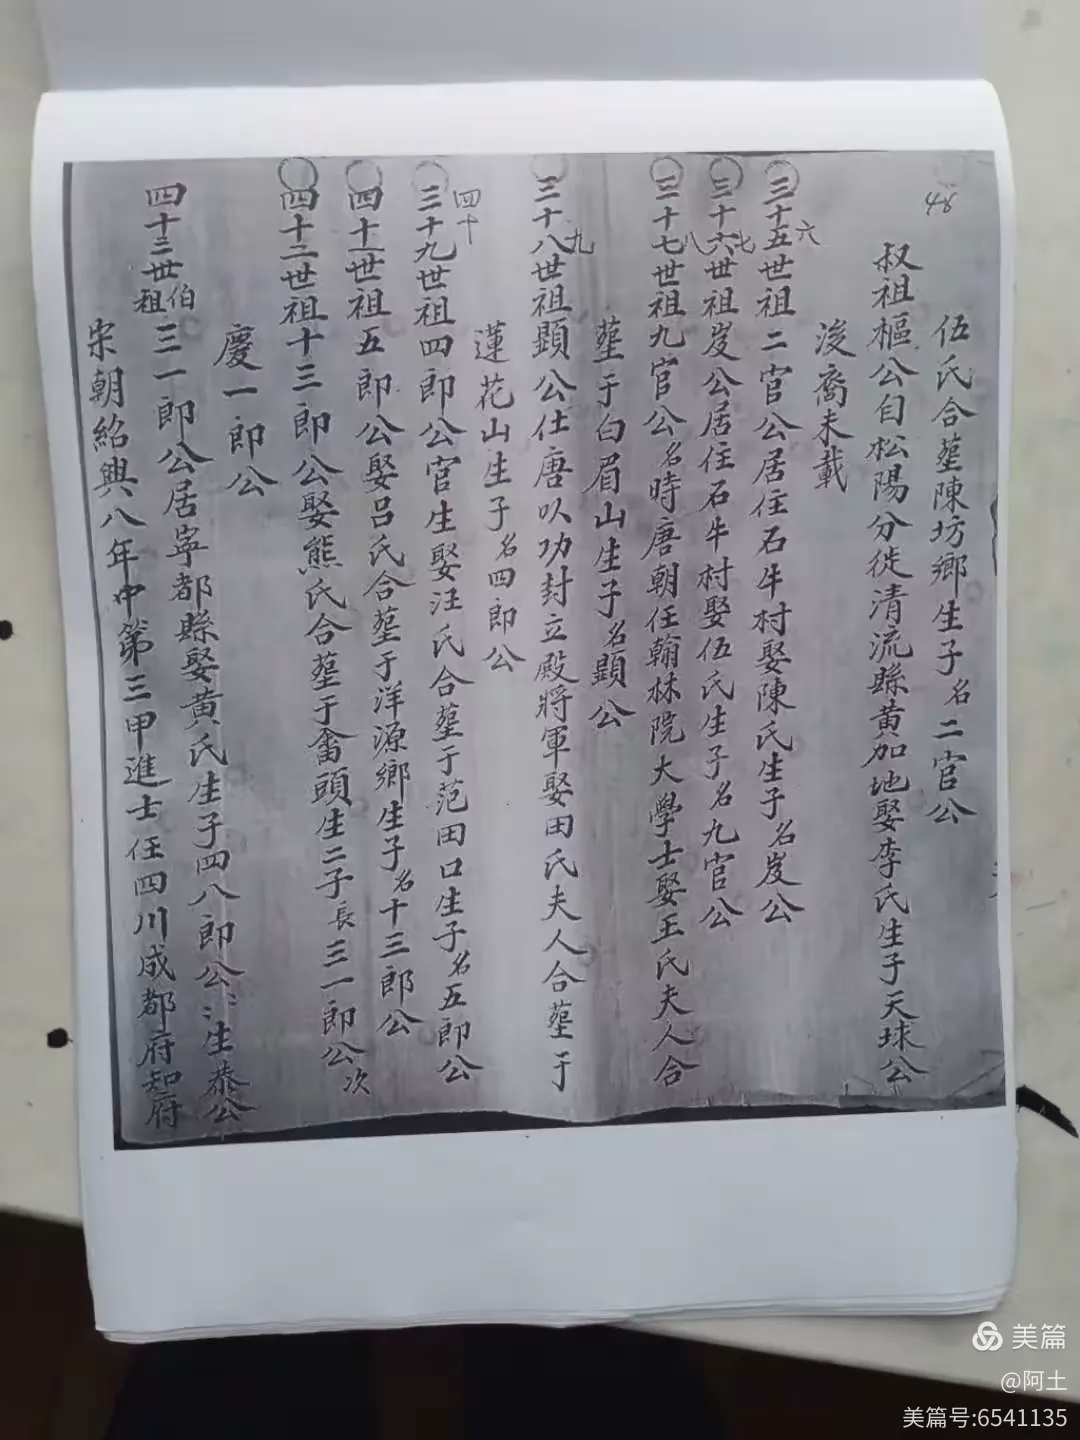 48
伍氏合塟陳坊鄉生子名二官公
叔祖樞公自松陽分徙清流縣黃加地娶李氏生子天球公
後裔未載
三十五世祖二官公居住石牛村娶陳氏生子名岌公
六
三十六世祖岌公居住石牛村娶伍氏生子名九官公
七
三十七世祖九官公名時唐朝任翰林院大學士娶王氏夫人合
八
塟于白眉山生子名顯公
三十八世祖顯公仕唐以功封立殿將軍娶田氏夫人合塟于
九
蓮花山生子名四郎公
三十九世祖四郎公官生娶汪氏合塟于范田口生子名五郎公
四十
四十一世祖五郎公娶呂氏合塟于洋源鄉生子名十三郎公
四十二世祖十三郎公娶熊氏合塟于畬頭生二子長三一郎公次
慶一郎公
四十三世伯祖三一郎公居寧都縣娶黃氏生子四八郎公〻生恭公
宋朝紹興八年中第三甲進士任四川成都府知府
美篇
@阿土
美篇号:6541135